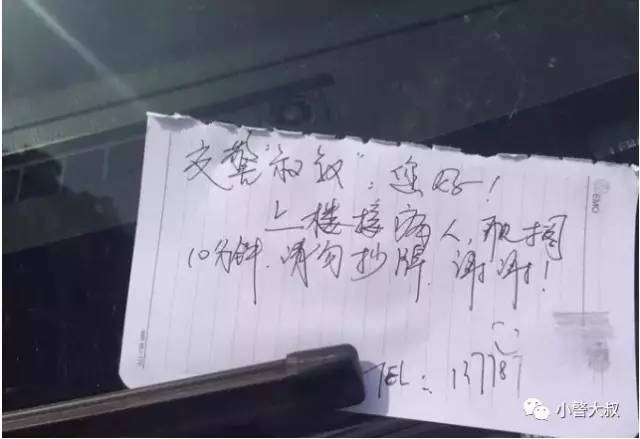 交警"叔叔"：您好！
上楼接病人，耽搁
10分钟.请勿抄牌.谢谢！
TEL：137787
EMO
小警大叔